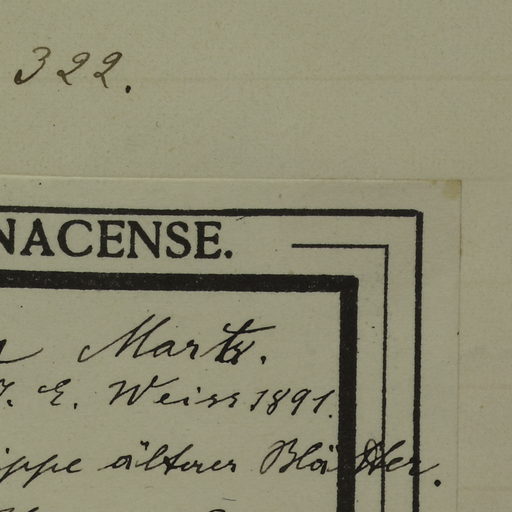 322.
NACENSE.
Marts.
. E. Weiss 1891.
ippe älterer Blätter.